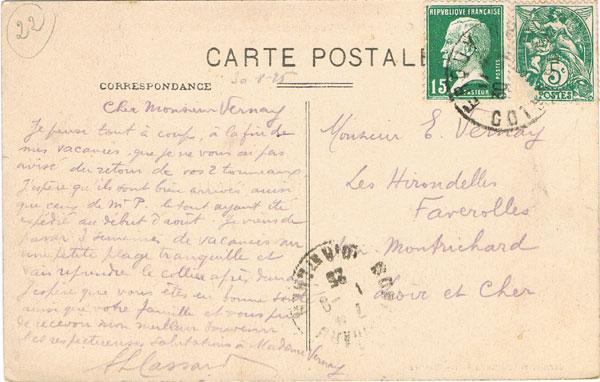 22
CARTE POSTALE
REPVBLIQVE FRANÇAISE
15
POSTES
PASTEUR
5c
POSTES
CORRESPONDANCE
30-8-25
Cher Monsieur Vernay
Je pense tout à coup, à la fin de
mes vacances, que je ne vous ai pas
avisé du retour de vos 2 tonneaux
J'espère qu'ils sont bien arrivés ainsi
que ceux de Mr P. le tout ayant été
expédié au début d'août. Je viens de
passer 3 semaines de vacances sur
une petite plage tranquille et
vais reprendre le collier après demain
J'espère que vous êtes en bonne santé
ainsi que votre famille et vous prie
de recevoir mon meilleur souvenir
et les respectueuses salutations à Madame Vernay
Monsieur E. Vernay
Les Hirondelles
Faverolles
Montrichard
Loir et Cher